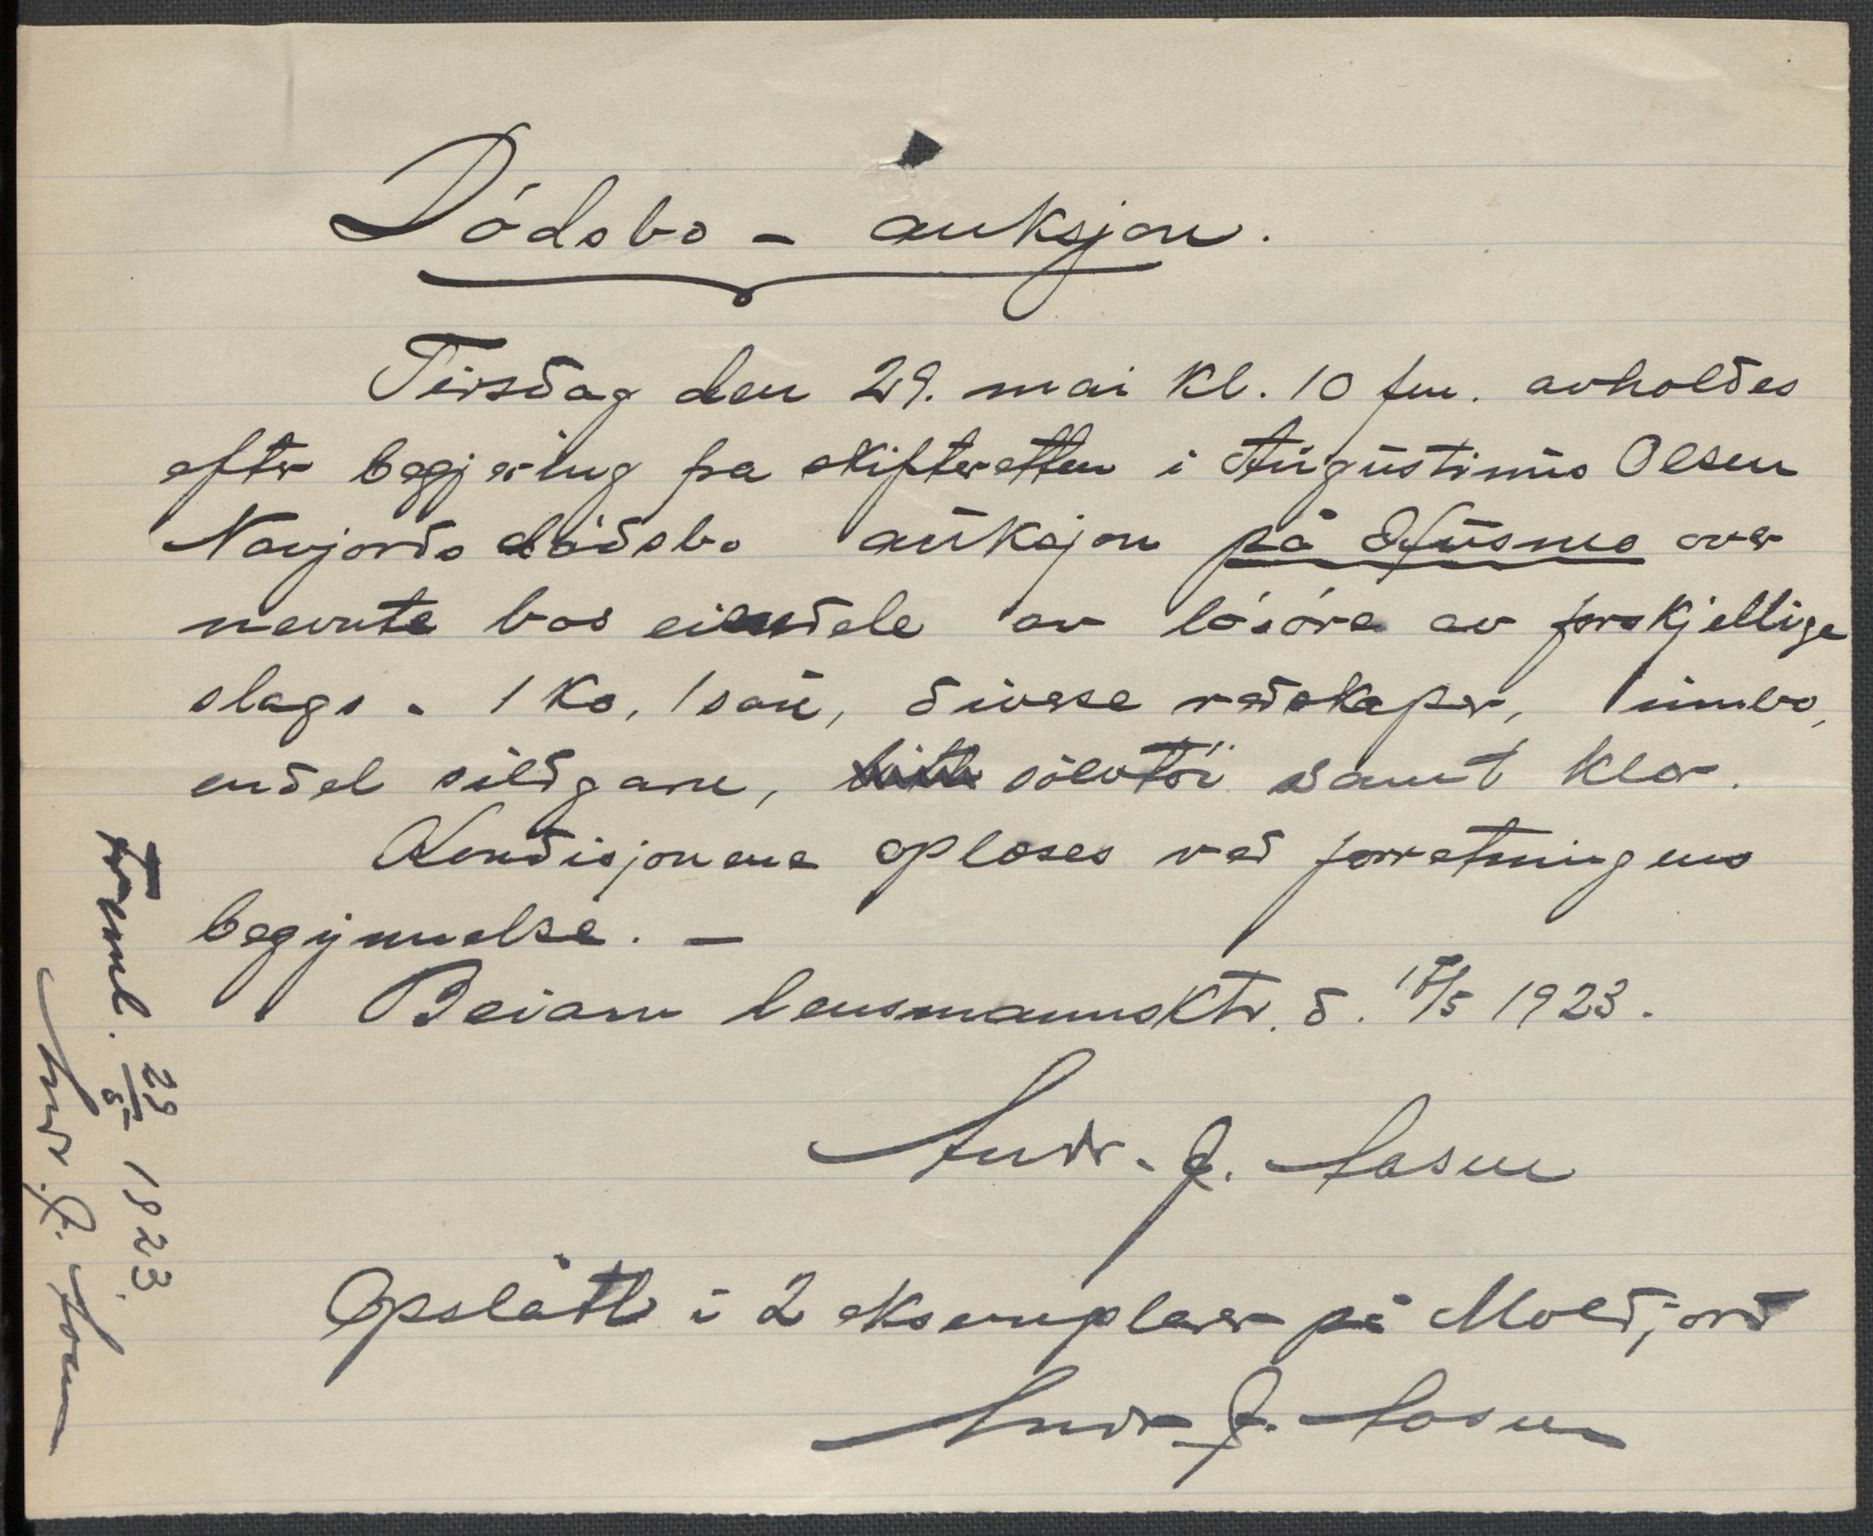 Dódsbo - auksjon.
Tirsdag den 29. mai kl. 10 fm. avholdes
efter begjæring fra skifteretten i Augustinus Olsen
Navjords dódsbo auksjon på Husmo over
nevnte bos eiendele av lósóre av forskjellige
slags. 1 ko, 1 sau, diverse redskaper, 1 
endel sildgarn, sólvtöi samt klær.
Kondisjonene oplæses ved forretningens
begynnelse. -
Beiarn lensmannsktr. d. /5 1923.
Andr. J. Aasen
Opslått i 2 eksemplarer på Moldjord
Andr. J. Aasen
Freml. 29/5 1923.
Andr. J. Aasen